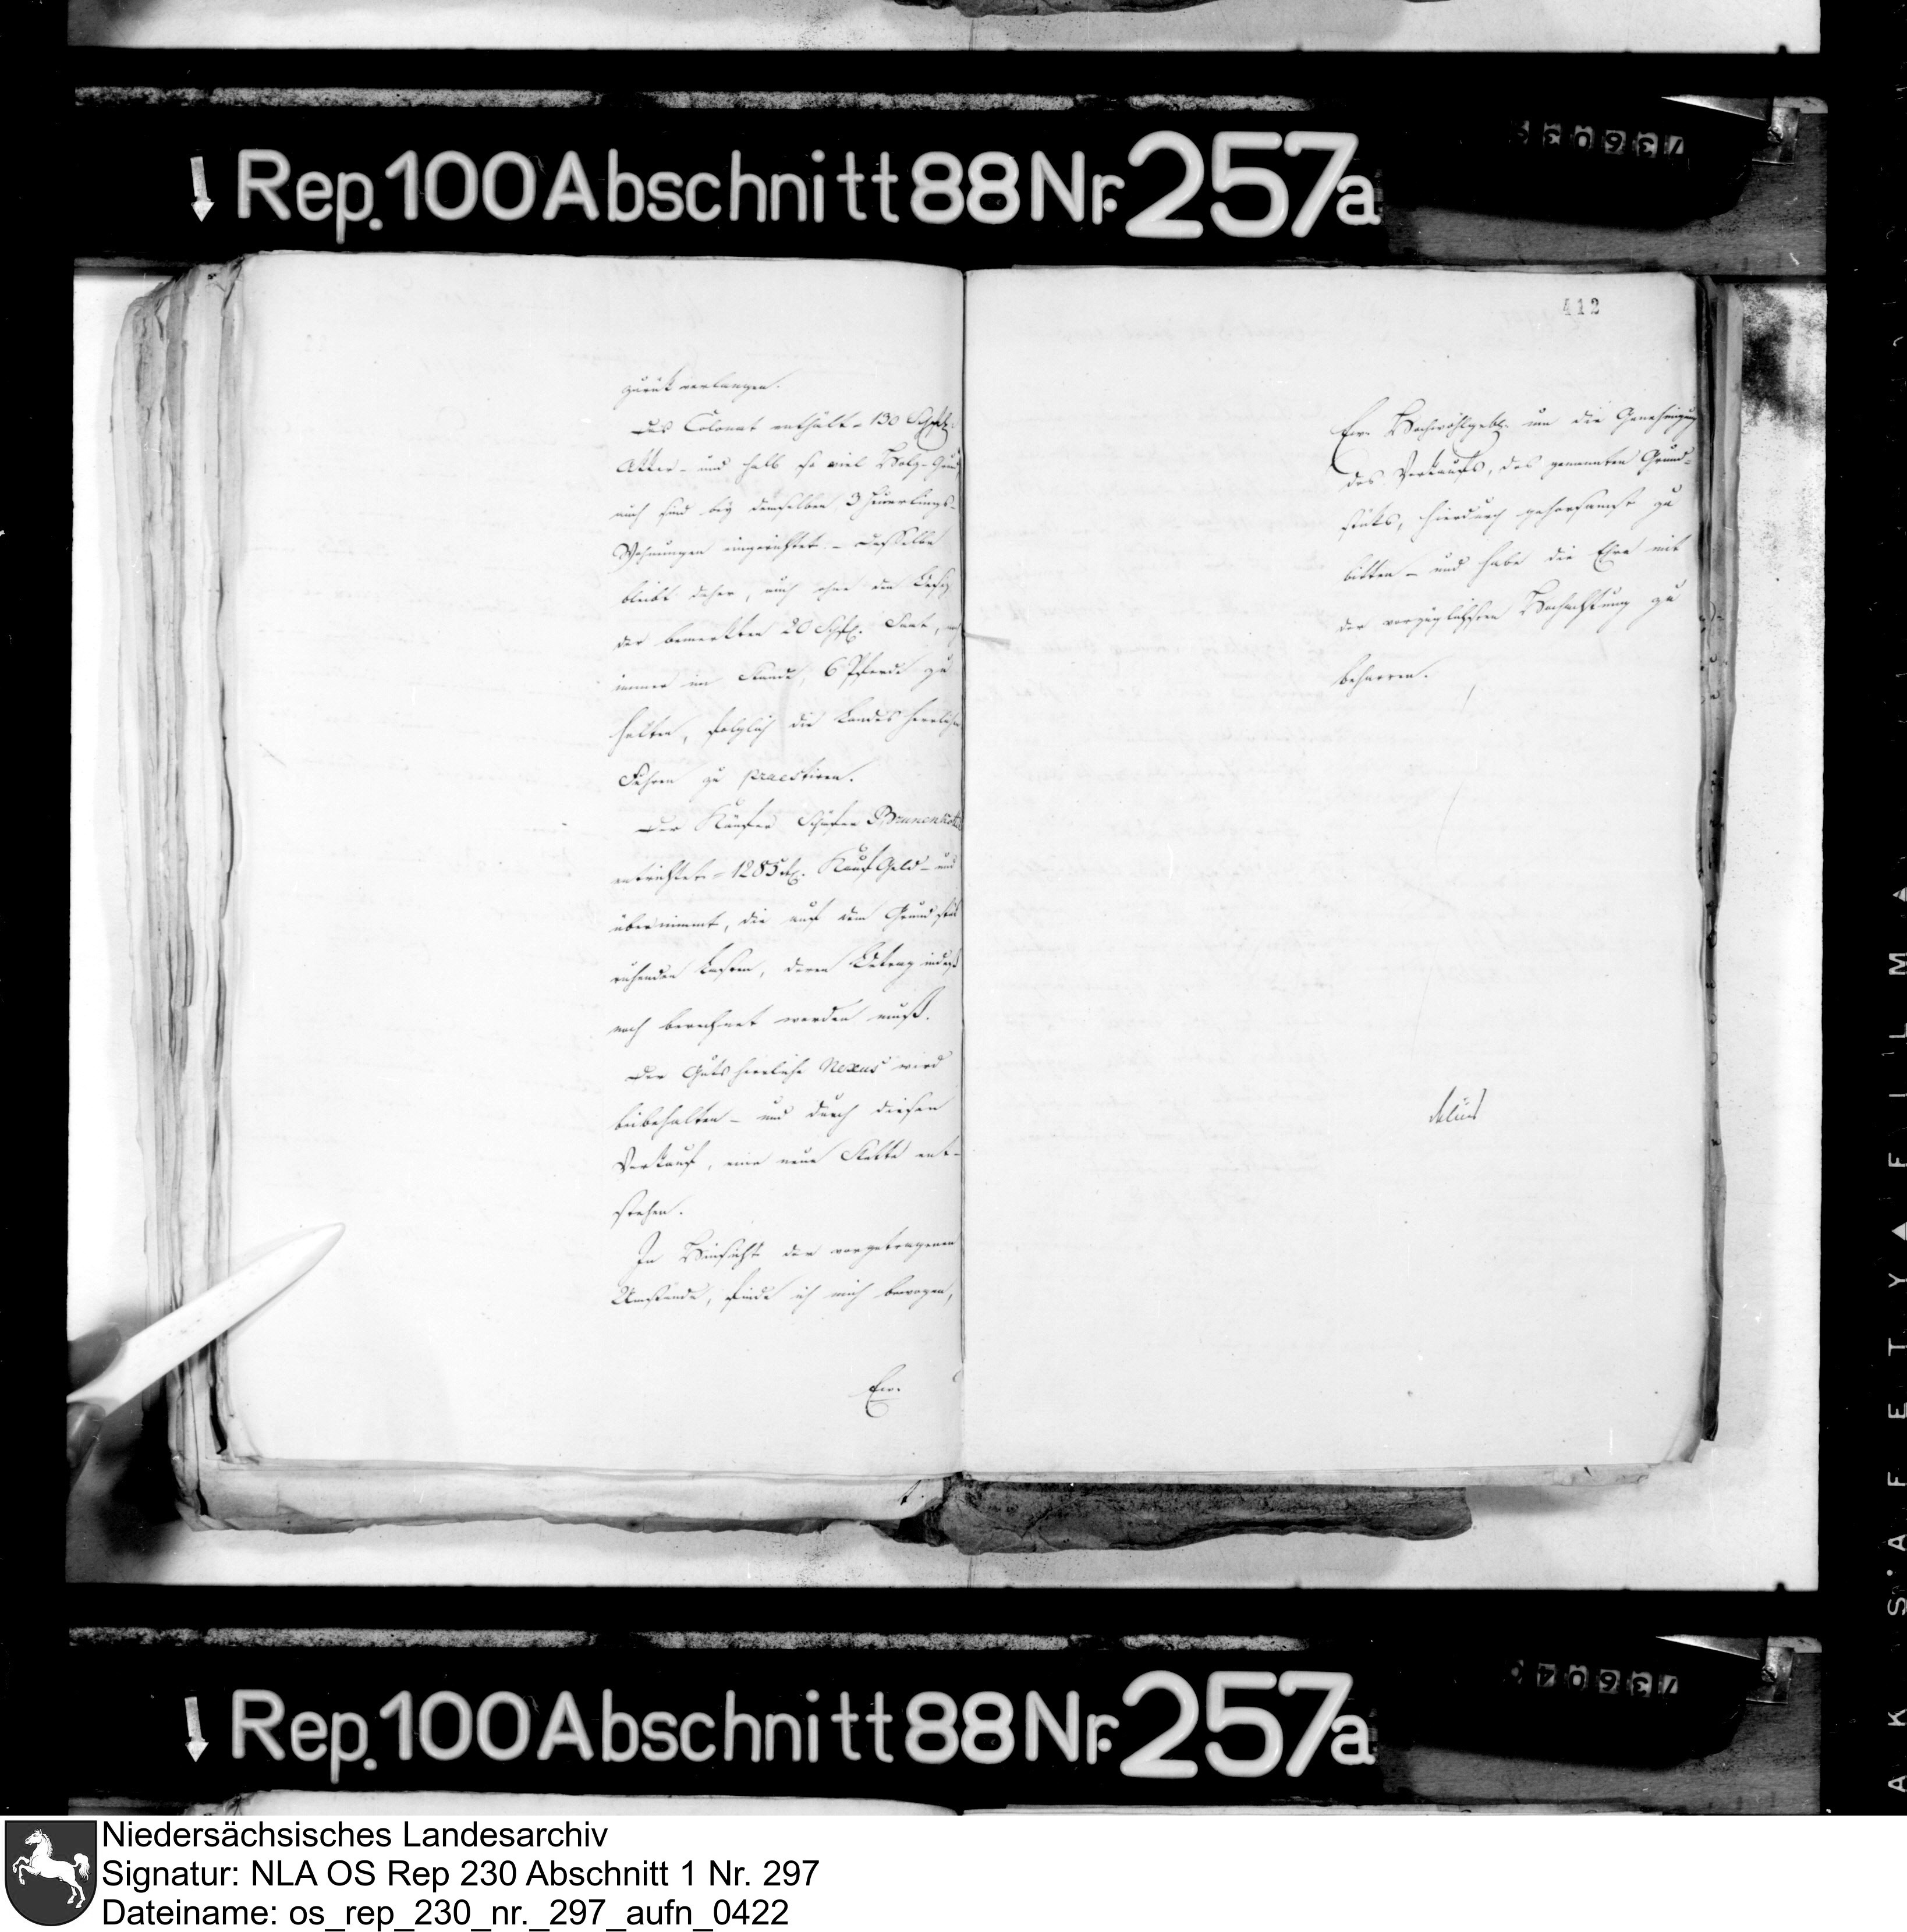 Rep. 100 Abschnitt 88 Nr. 257a
412
zurük verlangen.
Das Colonat enthält - 130 Schfls.
Aker - und halb so viel Holz-Grund
auch sind bey demselben, 3 Heuerlings-
Wohnungen eingerichtet. - Dasselbe
bleibt daher, auch ohne den Besitz
der bemerkten 20 Schfl. Saat, noch
immer im Stande, 6 Pferde zu
halten, folglich die Landesherrlichen
Fuhren zu praestiren.
Der Käufer Schäfer Brunenkött
entrichtet - 1285 rt. Kauf Geld - und
übernimmt, die auf dem Grundstük
ruhenden Lasten, deren Betrag indeß
noch berechnet werden muß.
Der Gutsherrliche Nexus wird
beibehalten - und durch diesen
Verkauf, eine neue Stätte ent-
stehen.
In Hinsicht der vorgetragenen
Umstände, finde ich mich bewogen,
Ew.
Ew. Hochwohlgebl. um die Genehmigung
des Verkaufs, des genannten Grund-
stüks, hierdurch gehorsamst zu
bitten - und habe die Ehre mit
der vorzüglichsten Hochachtung zu
beharren.
Delius
Rep. 100 Abschnitt 88 Nr. 257a
Niedersächsisches Landesarchiv
Signatur: NLA OS Rep 230 Abschnitt 1 Nr. 297
Dateiname: os_rep_230_nr._297_aufn_0422